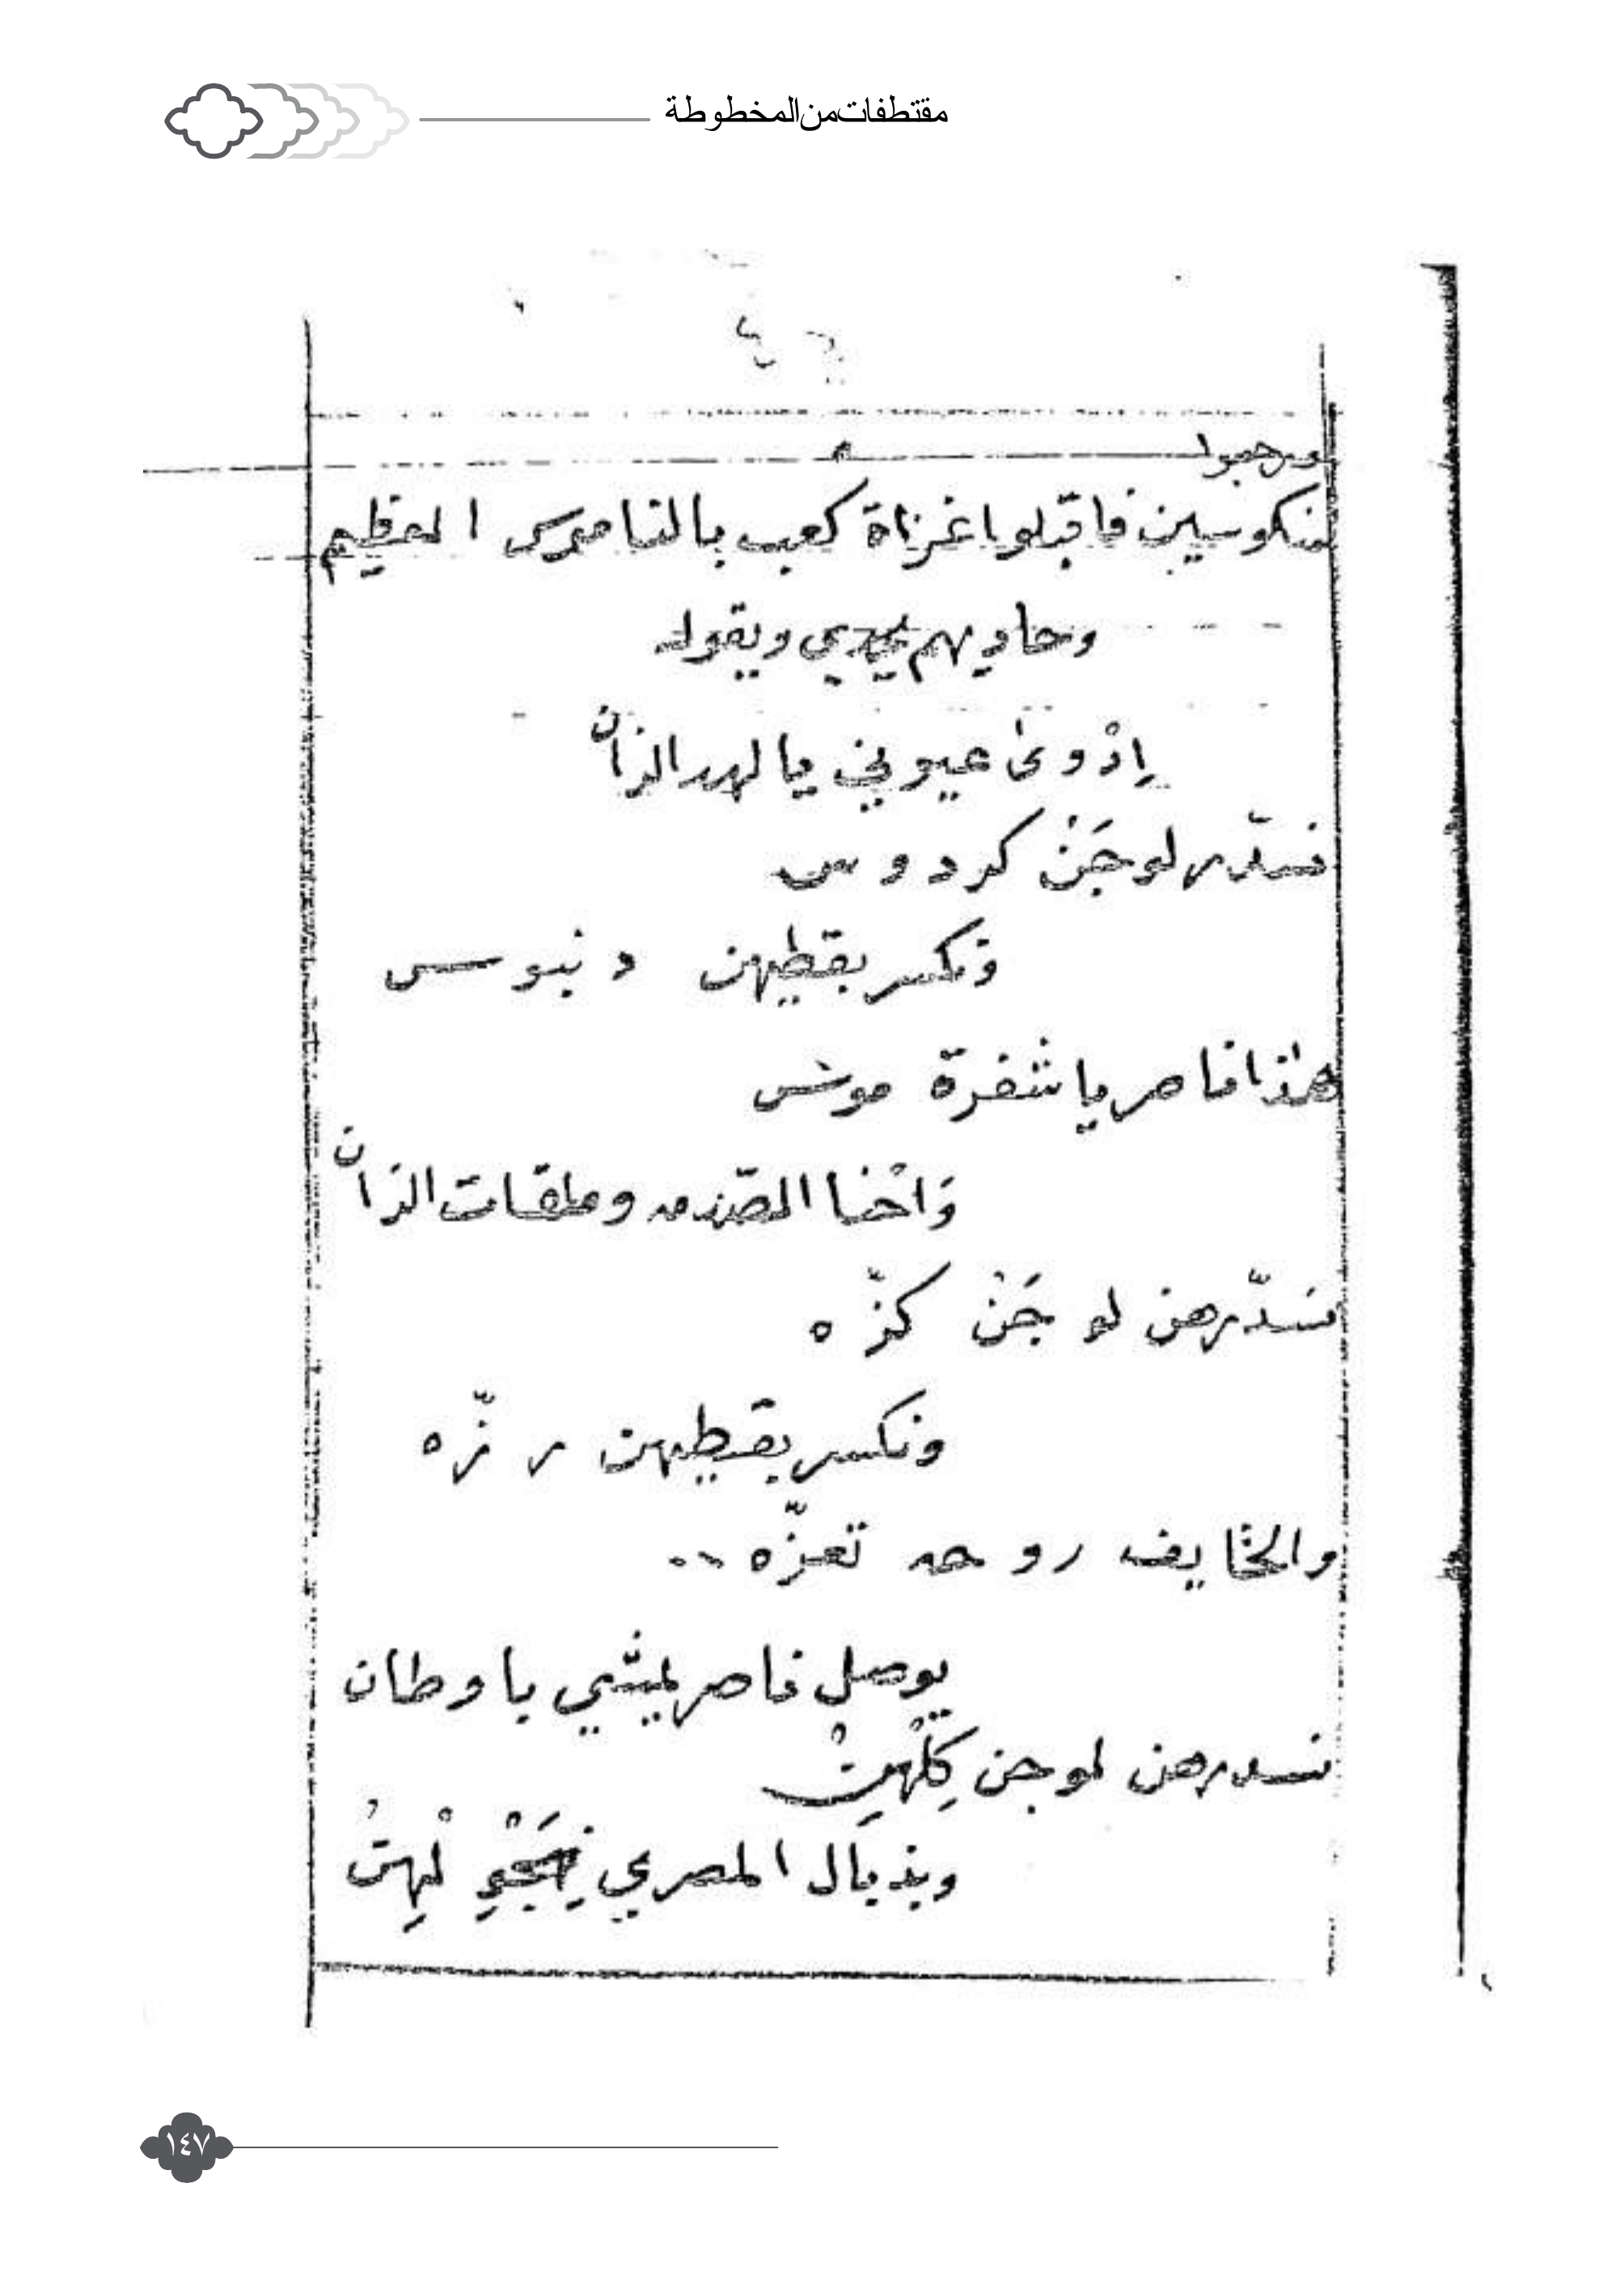 مقتطفات من المخطوطة
ورجعوا
منكوسين فاقبلوا غزاة كعب بالناموس العظيم
وحاديهم يحدي ويقول
إدْوىٰ عيوني يالهد الزان
نسدّر لوجَنْ كردوس
ونكسر بقطيهن دنبوس
هذا ناصر يا شفرة موس
وَاحْنا الصّدمه وملقات الزان
نسدّرهن لو جَنْ كزّه
ونكسر بقطيهن رزّه
والخايف روحه تعزّه ..
يوصل ناصر يمشي باوطان
نسدرهن لوجن كِلْهِنْ
وبذيال المصري لْهِنْ
١٤٧